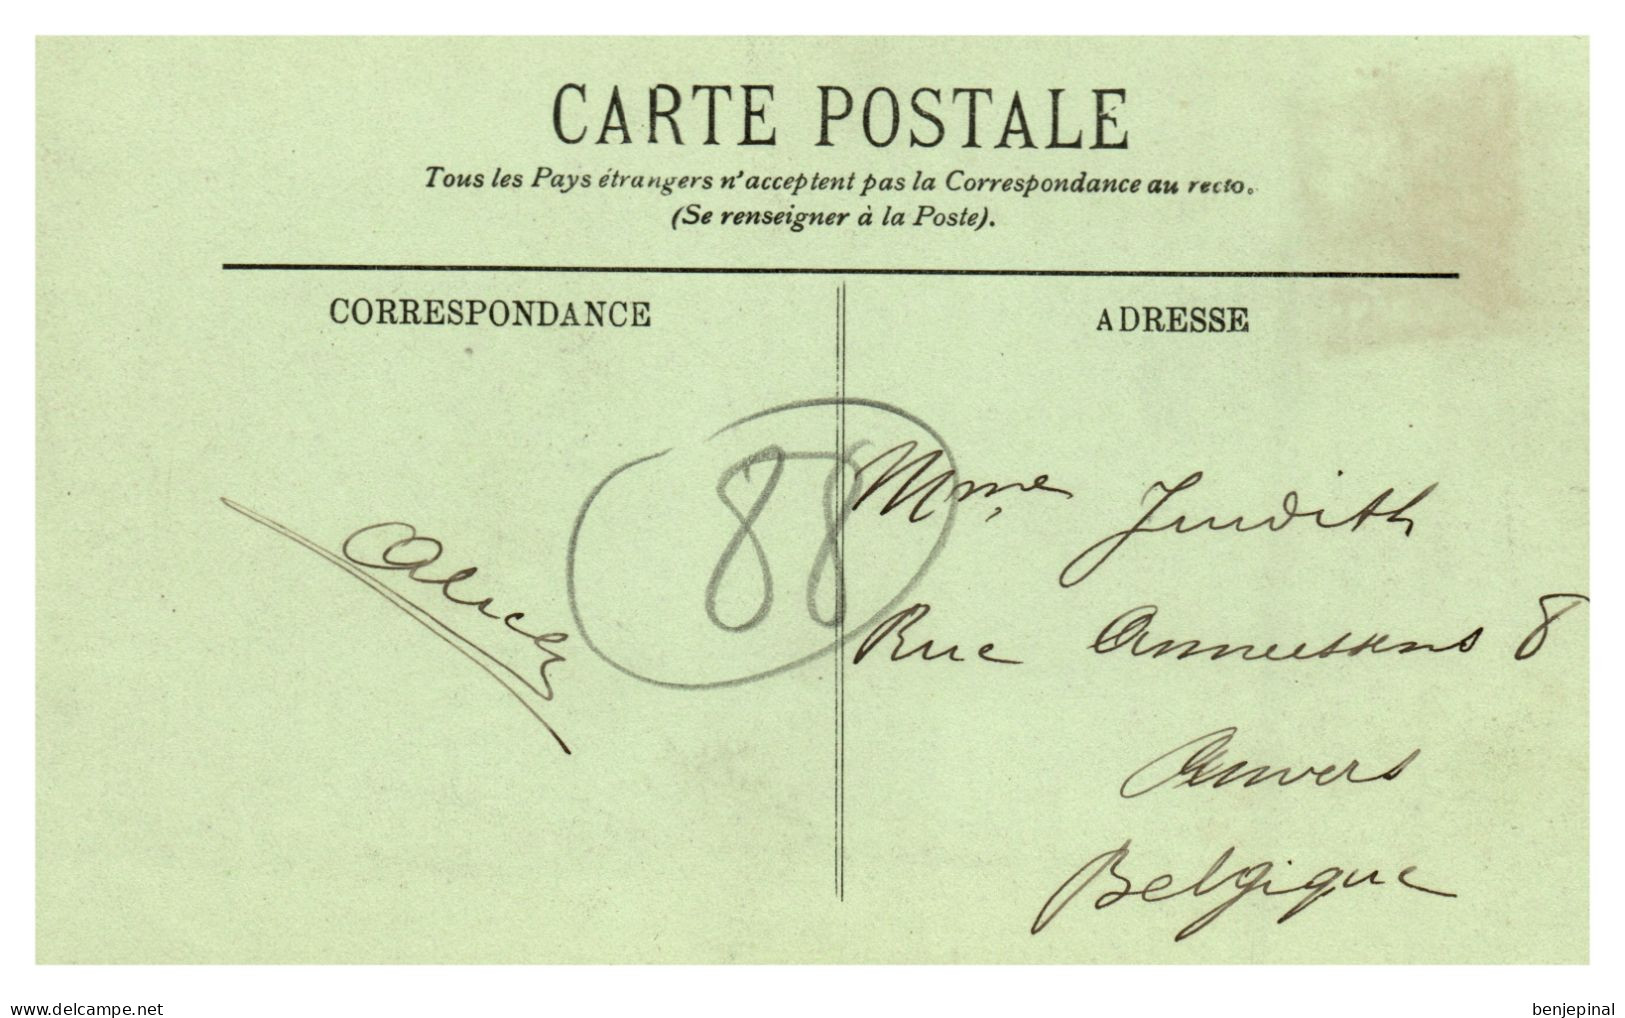 CARTE POSTALE
Tous les Pays étrangers n'acceptent pas la Correspondance au recto.
(Se renseigner à la Poste).
CORRESPONDANCE
ADRESSE
88
Mme Judith
Rue Anneessens 8
Anvers
Belgique
www.delcampe.net
benjepinal